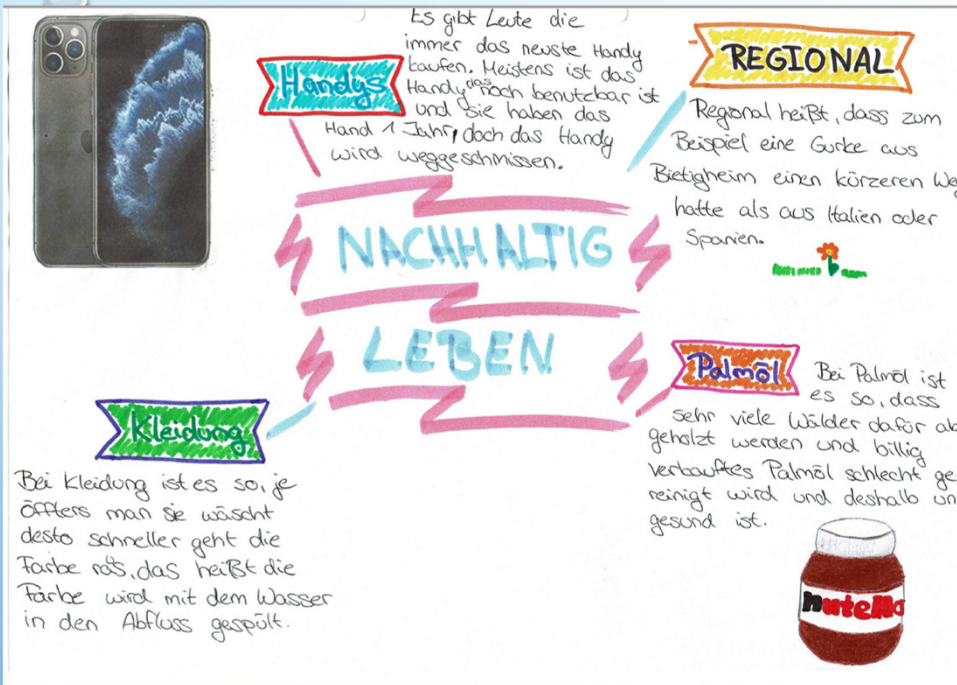 Handys
Es gibt Leute die
immer das neuste Handy
kaufen. Meistens ist das
Handy das noch benutzbar ist
und sie haben das
Hand 1 Jahr, doch das Handy
wird weggeschmissen.
REGIONAL
Regional heißt, dass zum
Beispiel eine Gurke aus
Bietigheim einen kürzeren We
hatte als aus Italien oder
Spanien.
NACHHALTIG
LEBEN
Kleidung
Bei Kleidung ist es so, je
öffters man sie wäscht
desto schneller geht die
Farbe raus, das heißt die
Farbe wird mit dem Wasser
in den Abfluss gespült.
Palmöl
Bei Palmöl ist
es so, dass
sehr viele Wälder dafür ab
geholzt werden und billig
verkauftes Palmöl schlecht ge
reinigt wird und deshalb un
gesund ist.
nutella